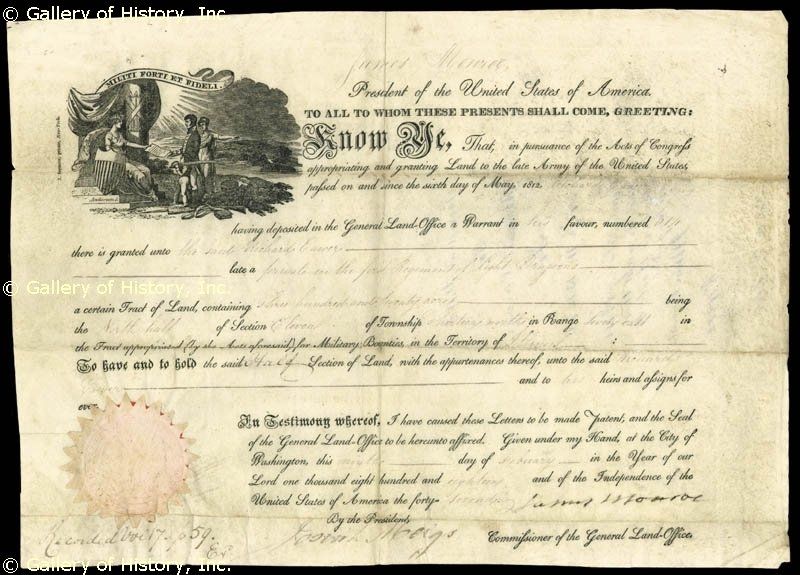 © Gallery of History, Inc.
© Gallery of History, Inc.
MILITI FORTI ET FIDELI.
James Monroe
President of the United States of America.
TO ALL TO WHOM THESE PRESENTS SHALL COME, GREETING:
Know Ye, That, in pursuance of the Acts of Congress
appropriating and granting Land to the late Army of the United States,
passed on and since the sixth day of May, 1812,
having deposited in the General Land-Office a Warrant in his favour, numbered
there is granted unto the said Richard
late a private in the first Regiment of Light Dragoons
© Gallery of History, Inc.
© Gallery of History, Inc.
a certain Tract of Land, containing three hundred and twenty acres being
the North half of Section Eleven of Township north in Range in
the Tract appropriated (by the Acts aforesaid) for Military Bounties, in the Territory of Illinois :
To have and to hold the said Half Section of Land, with the appurtenances thereof, unto the said Richard
and to his heirs and assigns for
ever.
In Testimony whereof, I have caused these Letters to be made Patent, and the Seal
of the General Land-Office to be hereunto affixed. Given under my Hand, at the City of
Washington, this day of February in the Year of our
Lord one thousand eight hundred and eighteen and of the Independence of the
United States of America the forty-second
James Monroe
By the President,
Josiah Meigs Commissioner of the General Land-Office.
Recorded Vol 17. p 59.
© Gallery of History, Inc.
© Gallery of History, Inc.